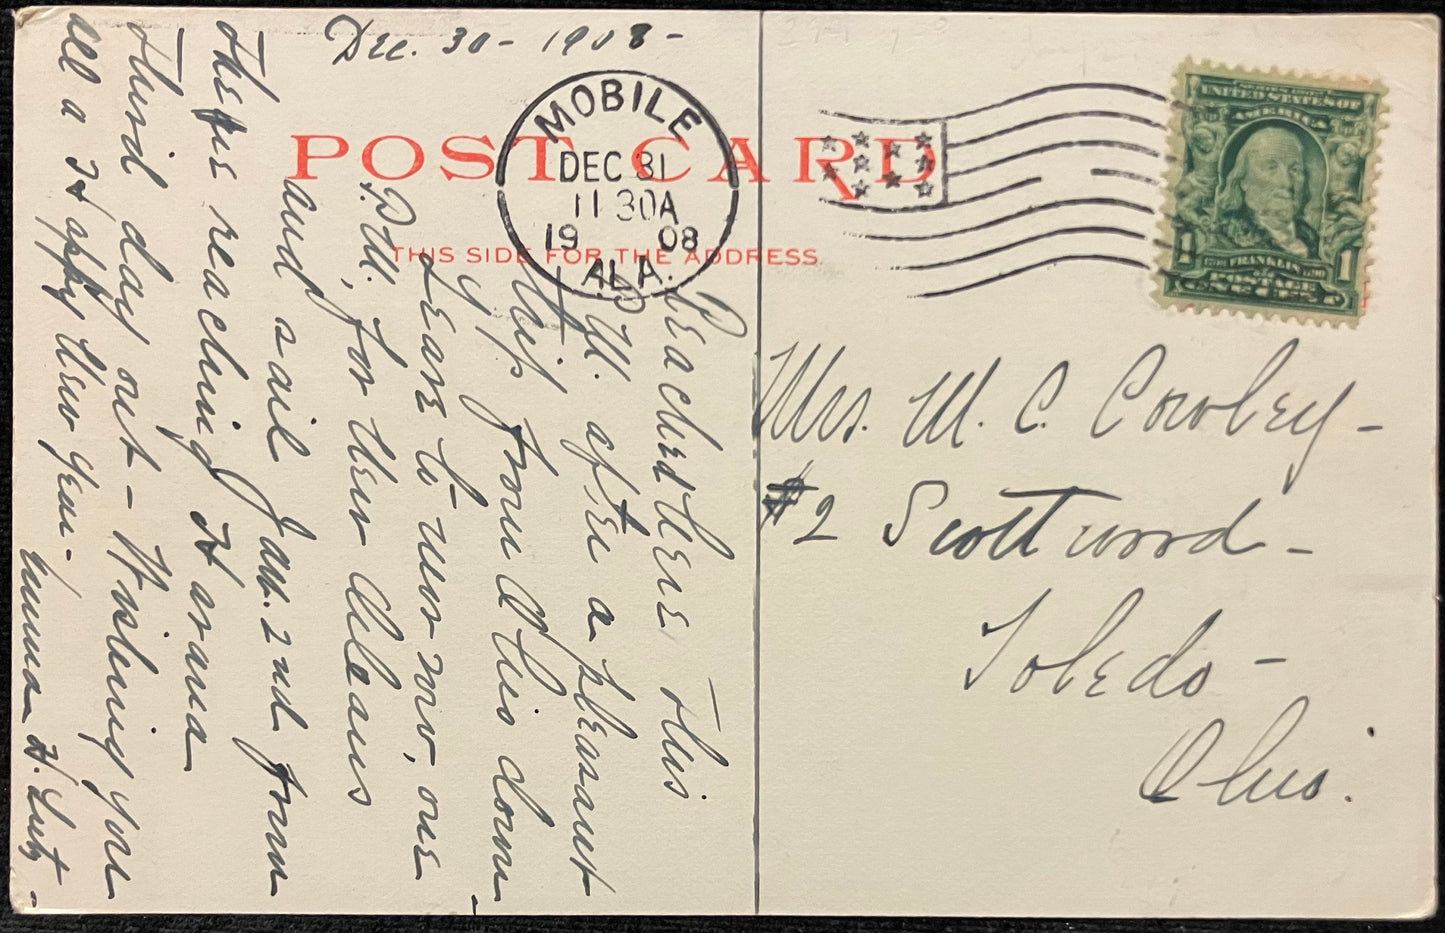 Dec. 30 - 1908 -
POST CARD
THIS SIDE FOR THE ADDRESS.
MOBILE
DEC 31
11 30A
19 08
ALA.
UNITED STATES OF
AMERICA
1 FRANKLIN 1
Reached here this
P.M. after a pleasant
trip from Ohio down -
y.
Leave to-morrow, one
P.M., for New Orleans
and sail Jan. 2nd from
There reaching Havana
third day out - Wishing you
all a Happy New Year -
Emma H. Lutz -
Mrs. M. C. Cowley -
#2 Scottwood -
Toledo -
Ohio.